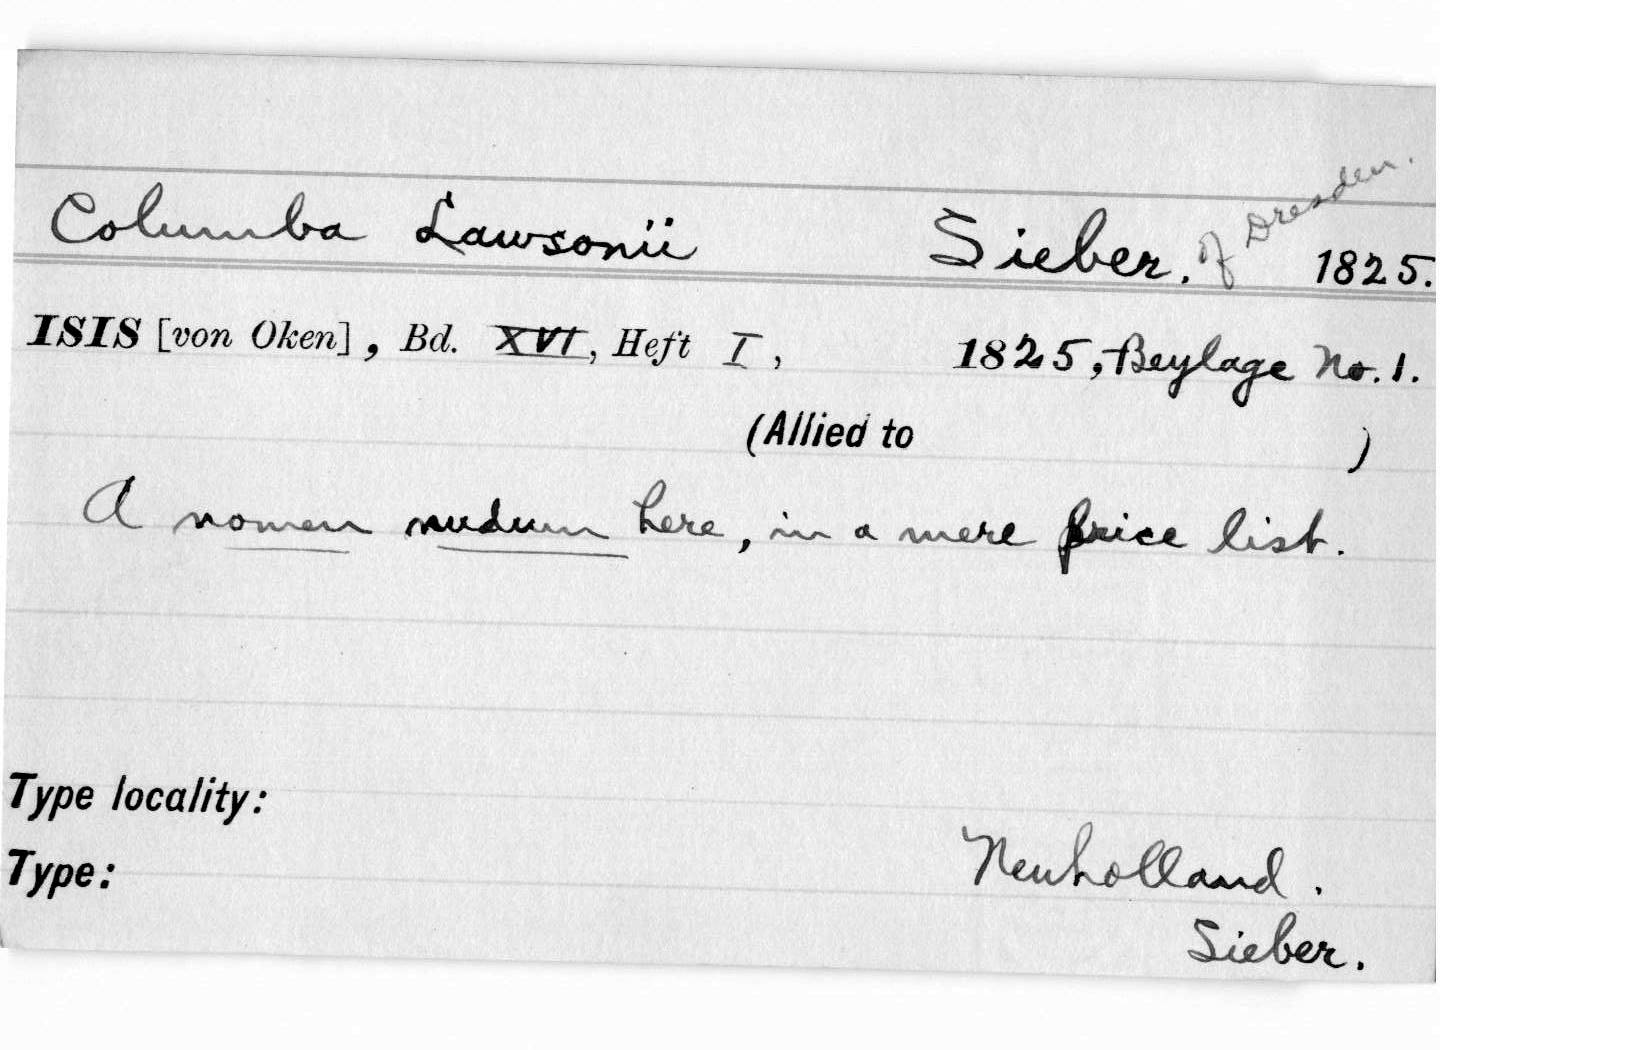 Columba Lawsonii Sieber. of Dresden. 1825.
ISIS [von Oken], Bd. XVI, Heft I, 1825, Beylage No. 1.
(Allied to )
A nomen nudum here, in a mere price list.
Type locality:
Neuholland.
Type:
Sieber.